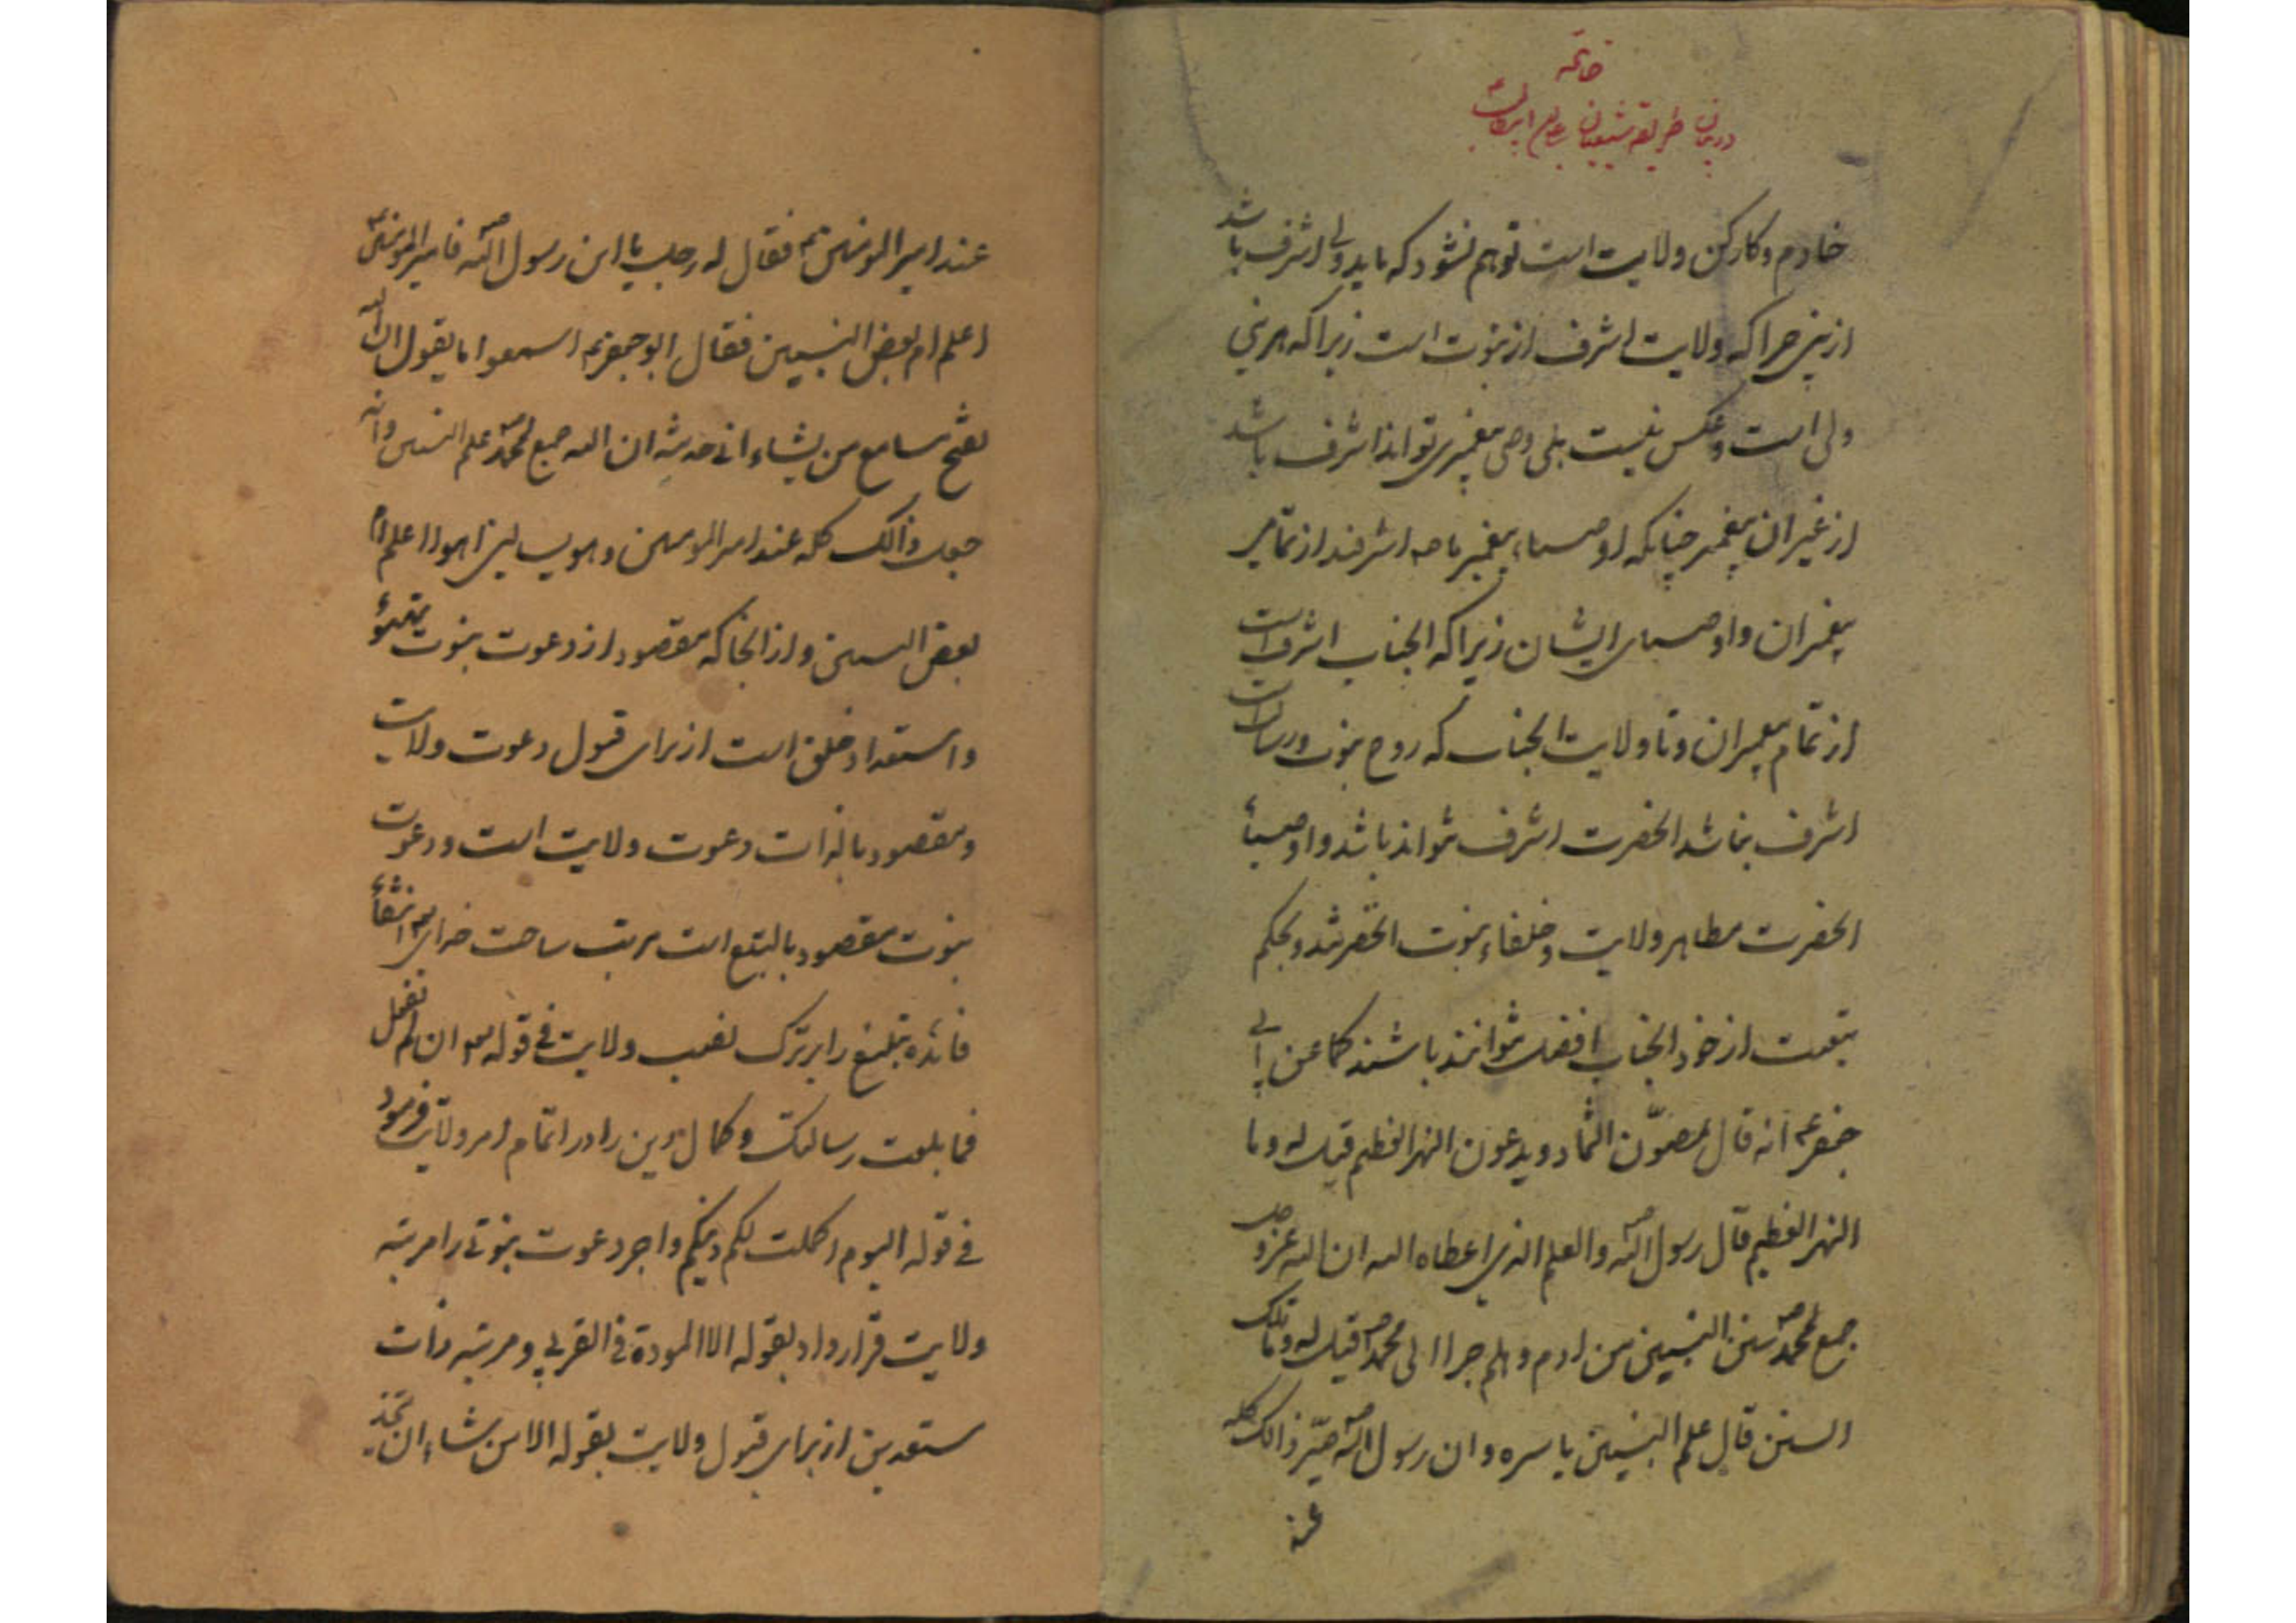 خاتمه
در بیان طریقه شیعیان
خادم و کارکن ولایت است توهم نشود که باید ولی اشرف باشد
از نبی چرا که ولایت اشرف از نبوت است زیرا که هر نبی
ولی است و عکس نیست بلی وصی پیغمبری تواند اشرف باشد
از غیر ان پیغمبر چنانکه اوصیاء پیغمبر ما صه اشرفند از تمام
پیغمبران و اوصیای ایشان زیرا که انجناب اشرف است
از تمام پیغمبران و تا ولایت انجناب که روح نبوت و رسالت است
اشرف نباشد انحضرت اشرف نتواند باشد و اوصیاء
انحضرت مظاهر ولایت و خلفاء نبوت انحضرتند و بحکم
تبعیت از خود انجناب افضل نتوانند باشند کما عن ابی
جعفر عه انه قال یمصون الثماد و یدعون النهر العظیم قیل له و ما
النهر العظیم قال رسول الله صه و العلم الذی اعطاه الله ان الله عز و جل
جمع لمحمد صه سنن النبیین من ادم و هلم جرا الی محمد صه قیل له و ما تلک
السنن قال علم النبیین باسره و ان رسول الله صه صیر ذالک کله
عند
عند امیر المومنین عه فقال له رجل یا ابن رسول الله صه فامیر المومنین عه
اعلم ام بعض النبیین فقال ابو جعفر عه اسمعوا ما یقول ان الله
یفتح مسامع من یشاء انی حدثته ان الله جمع لمحمد صه علم النبیین و انه
جعل ذالک کله عند امیر المومنین و هو یسالنی اهو اعلم ام
بعض النبیین و از انجا که مقصود از دعوت نبوت تهیؤ
و استعداد خلق است از برای قبول دعوت ولایت
و مقصود بالذات دعوت ولایت است و دعوت
نبوت مقصود بالتبع است مرتب ساخت خدای تعه انتفاء
فائده تبلیغ را بر ترک نصب ولایت فی قوله تعه ان لم تفعل
فما بلغت رسالتک و کمال دین را در اتمام امر ولایت فرمود
فی قوله الیوم اکملت لکم دینکم و اجر دعوت نبوتی را مرتبه
ولایت قرار داد بقوله الا المودة فی القربی و مرتبه ذات
مستعدین از برای قبول ولایت بقوله الا من شاء ان یتخذ